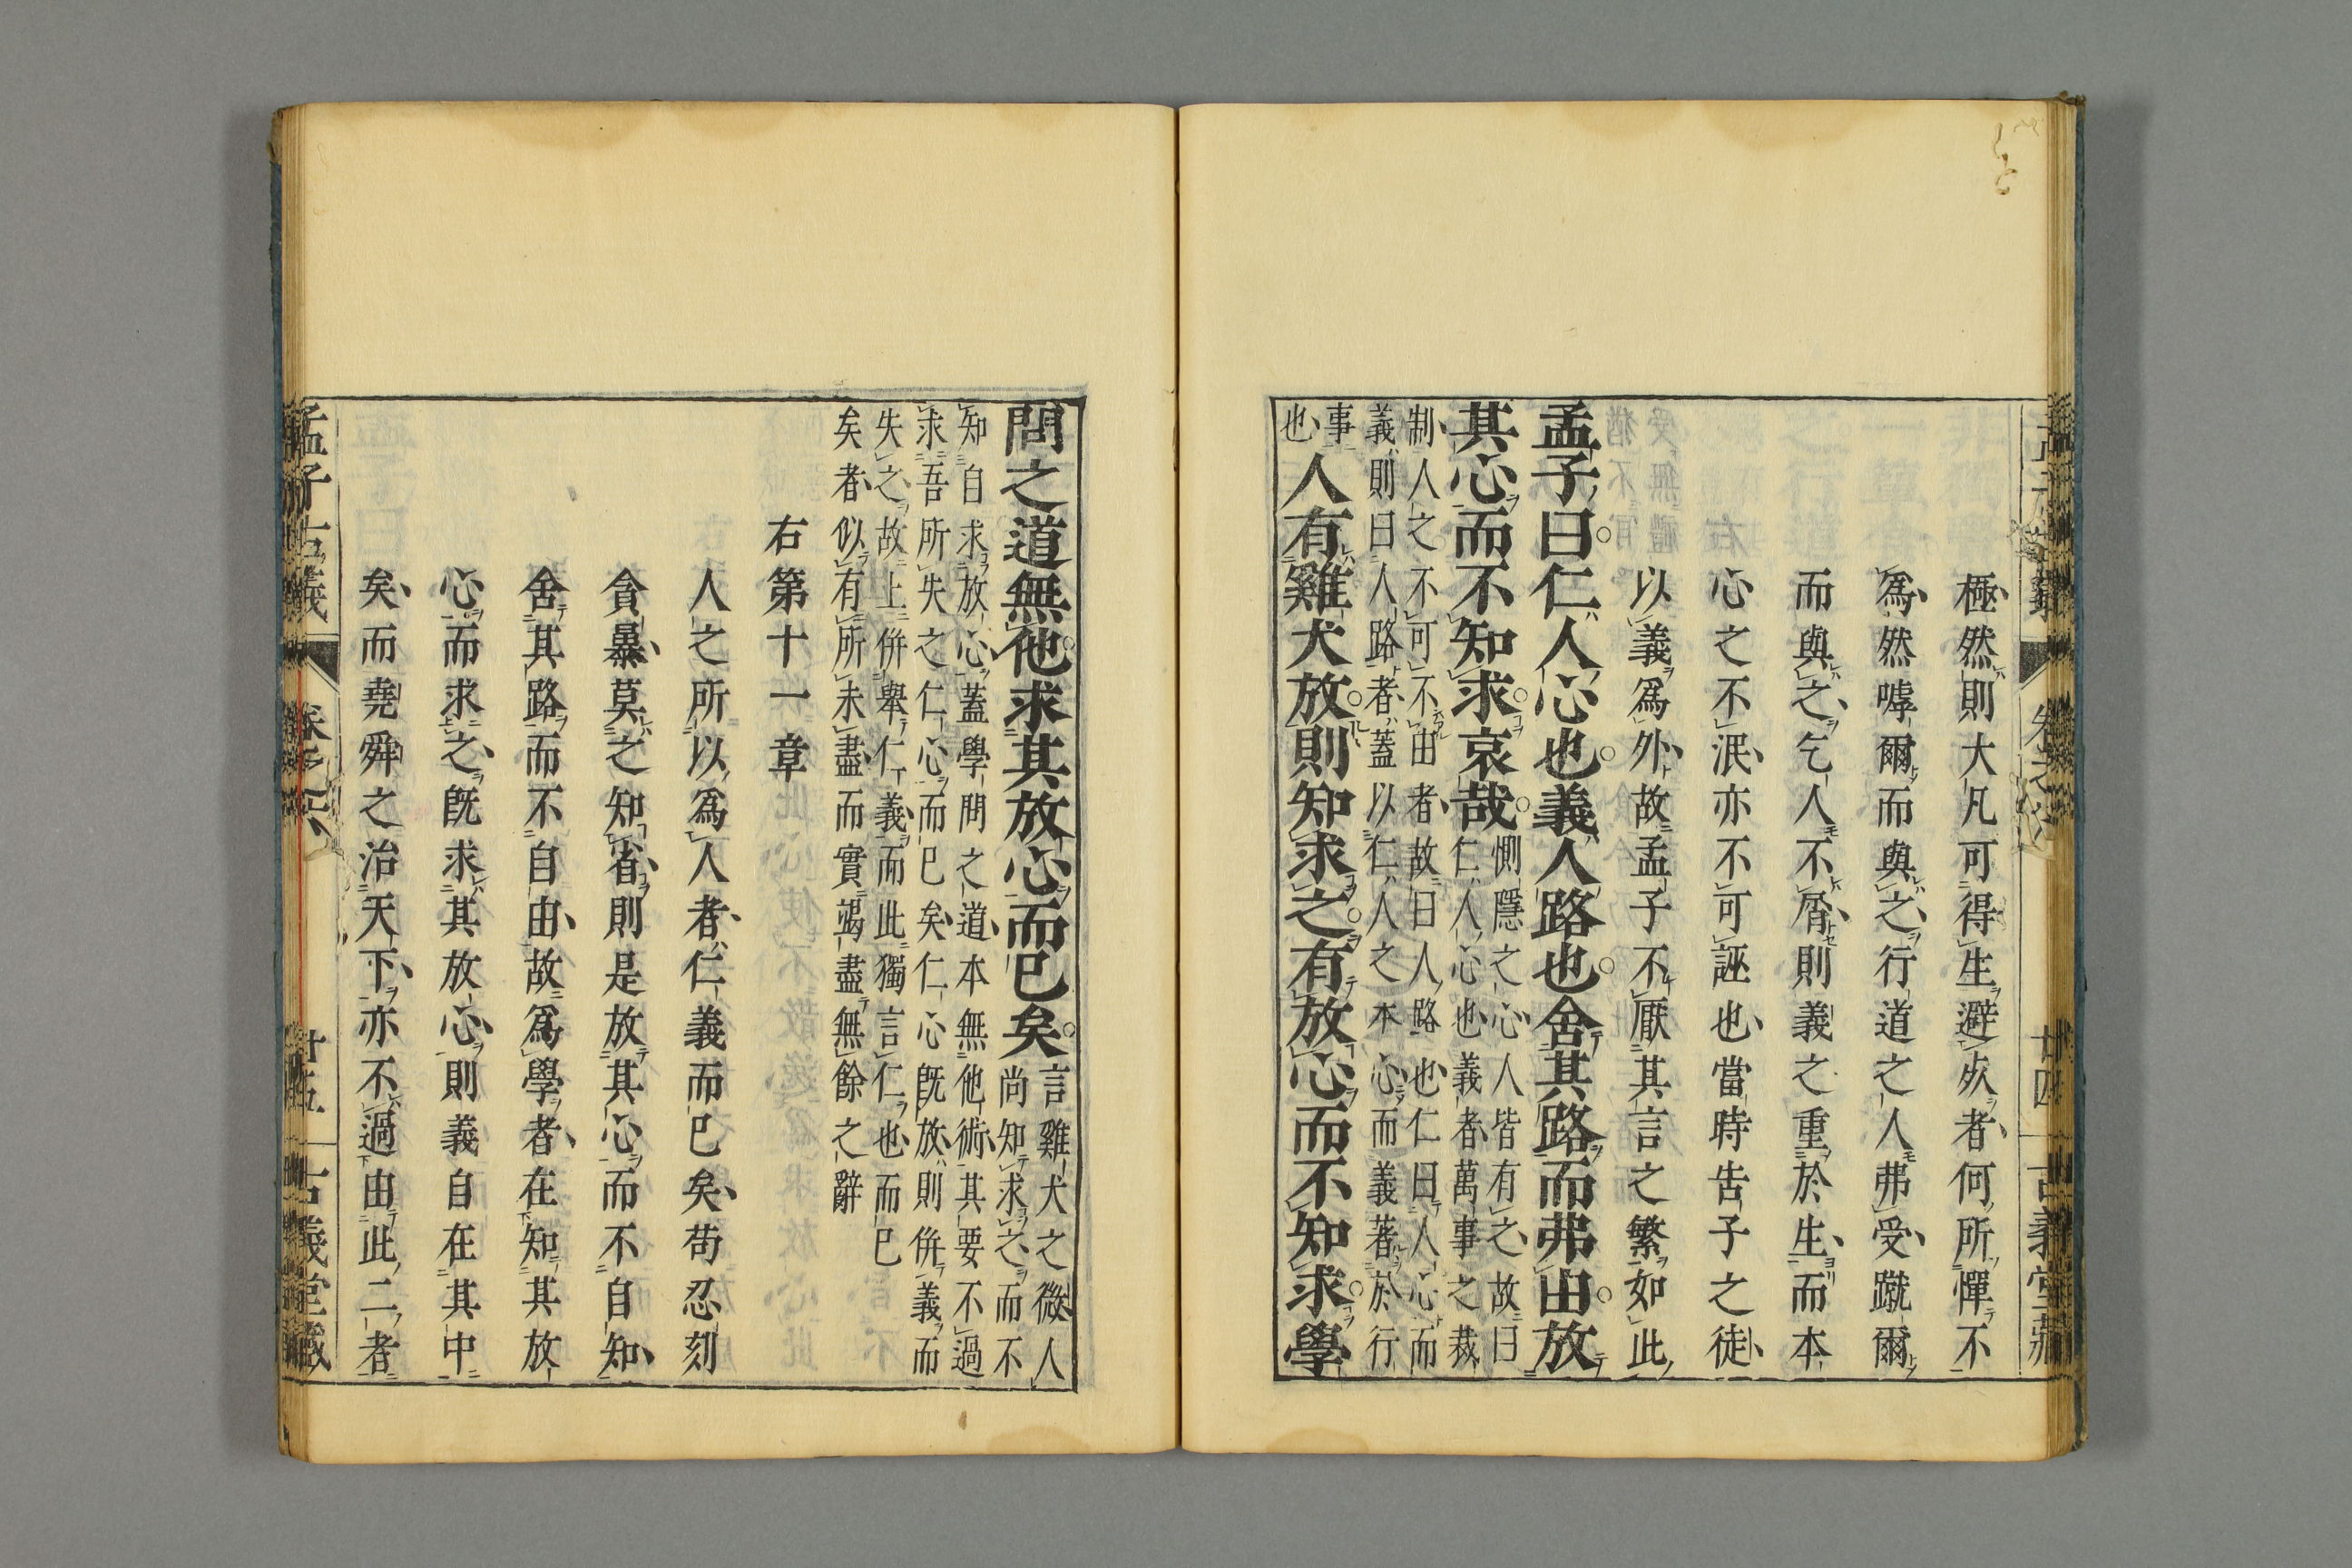 極然則大凡可得生避㷋者何所憚不
爲然嘑爾而與之行道之人弗受蹴爾
而與之乞人不屑則義之重於生而本
心之不泯亦不可誣也當時告子之徒
以義爲外故孟子不厭其言之繁如此
孟子曰仁人心也義人路也舍其路而弗由放
其心而不知求哀哉
惻隱之心人皆有之故曰
仁人心也義者萬事之裁
制人之不可不由者故曰人路也仁曰人心而
義則曰人路者蓋以仁人之本心而義著於行
事
也
人有雞犬放則知求之有放心而不知求學
問之道無他求其放心而已矣
言雞犬之微人
尚知求之而不
知自求放心蓋學問之道本無他術其要不過
求吾所失之仁心而已矣仁心既放則併義而
失之故上併舉仁義而此獨言仁也而已
矣者似有所未盡而實竭盡無餘之辭
右第十一章
人之所以爲人者仁義而已矣苟忍刻
貪暴莫之知省則是放其心而不自知
舍其路而不自由故爲學者在知其放
心而求之既求其放心則義自在其中
矣而堯舜之治天下亦不過由此二者
孟子古義
卷之六
廿五
古義堂藏
廿四
古義堂藏